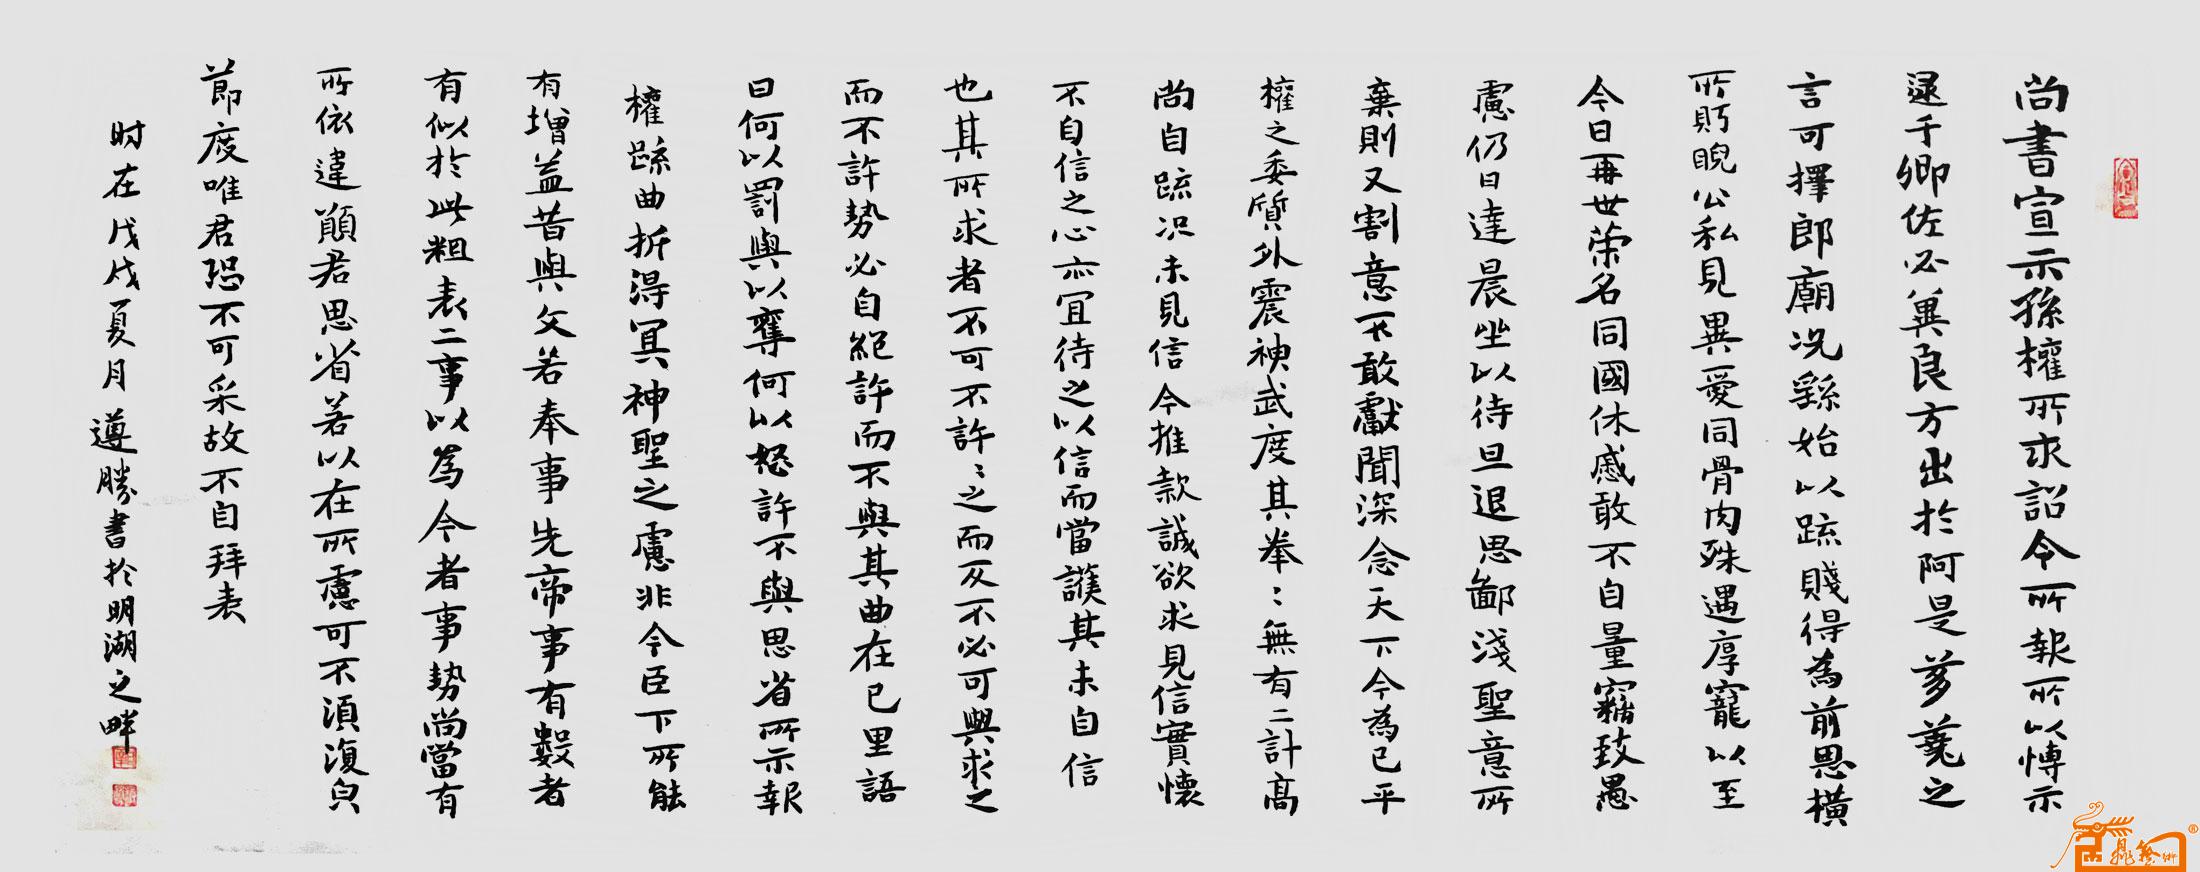 尚書宣示孫權所求詔令所報所以博示
逮于卿佐必冀良方出於阿是芻蕘之
言可擇郎廟况繇始以疏賤得為前恩橫
所盱睨公私見異愛同骨肉殊遇厚寵以至
今日再世荣名同國休慼敢不自量竊致愚
慮仍日達晨坐以待旦退思鄙淺聖意所
棄則又割意不敢獻聞深念天下今為已平
權之委質外震神武度其拳〻無有二計高
尚自疏况未見信今推款誠欲求見信實懷
不自信之心亦宜待之以信而當護其未自信
也其所求者不可不許〻之而反不必可與求之
而不許勢必自絕許而不與其曲在己里語
曰何以罰與以奪何以怒許不與思省所示報
權疏曲折得冥神聖之慮非今臣下所能
有增益昔與文若奉事先帝事有數者
有似於此粗表二事以為今者事勢尚當有
所依違願君思省若以在所慮可不須復皃
節度唯君恐不可采故不自拜表
时在戊戌夏月遵勝書於明湖之畔